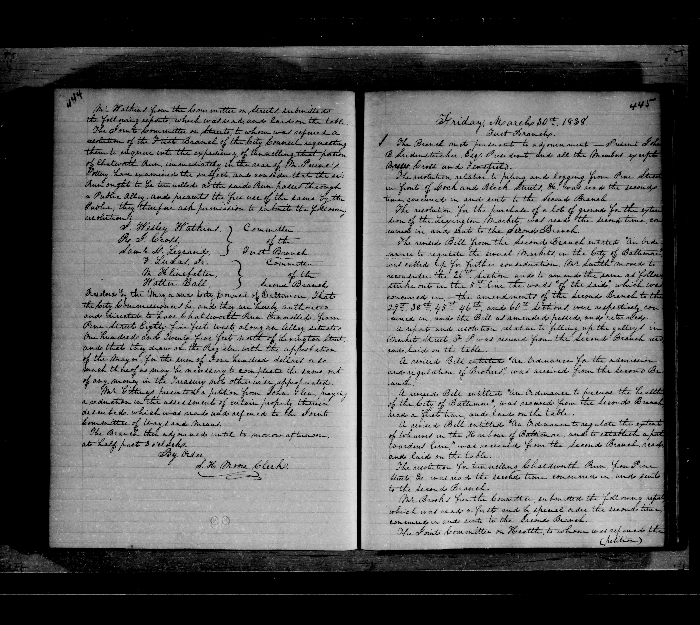 444
Mr. Watkins from the Committee on Streets submitted
the following report, which was read and laid on the table.
The Joint Committee on Streets to whom was referred a
resolution of the First Branch of the City Council requesting
them to enquire into the expediency of tunnelling that portion
of Chatsworth Run, immediately in the rear of Mr.
have examined the subject and consider that the
Run ought to be tunnelled as the said Run passes through
a Public Alley, and prevents the free use of the same by the
Public, they therefore ask permission to submit the following
resolution.
T. Wesby Watkins, Committee
Cross, of the
Saml. H. First Branch
F. Lucas Jr. Committee
M. of the
Walter Ball Second Branch
Resolved by the Mayor and City Council of Baltimore, That
the City Commissioners be and they are hereby authorized
and directed to have Chatsworth Run tunnelled from
Pine Street Eighty five feet west along an alley situated
One hundred and Twenty five feet north of Lexington Street,
and that they draw on the Register with the approbation
of the Mayor for the sum of Four hundred dollars or so
much thereof as may be necessary to complete the same out
of any money in the Treasury not otherwise appropriated.
Mr. presented a petition from John Glen, praying
a reduction in the assessment of certain property therein
described which was read and referred to the Joint
Committee of Ways and Means.
The Branch then adjourned until to morrow afternoon,
at half past 3 o'clock.
By Order
S. H. Moore Clerk.
445
Friday, March 30th, 1838.
First Branch.
The Branch met pursuant to adjournment — Present John
B. Seidenstricker, Esq. President and all the Members except
Cross and
The resolution relative to piling and logging from Pine Street
in front of and Block Streets, &c. was read the second
time, concurred in and sent to the Second Branch.
The resolution for the purchase of a lot of ground for the exten
sion of the Lexington Market, was read the second time, con
curred in, and sent to the Second Branch.
The revised Bill from the Second Branch entitled "An Ordi
nance to regulate the several Markets in the City of Baltimore,"
was called up for further consideration, Mr. moved to
reconsider the 26th section and to amend the same as follows
strike out in the 5th line the words "of the said" which was
concurred in — the amendments of the Second Branch to the
29th, 38th, 45th, 46th and 60th Sections, were respectively con
curred in, and the Bill as amended, passed, and sent
A report and resolution relative to filling up the gullies in
Street, was received from the Second Branch
read, and laid on the table.
A revised Bill entitled "An Ordinance for the
and regulation of Brokers", was received from the Second Br
anch.
A revised Bill entitled "An Ordinance to preserve the health
of the City of Baltimore", was received from the Second Branch
read a first time, and laid on the table.
A revised Bill entitled "An Ordinance to regulate the extent
of Wharves in the Harbour of Baltimore, and to establish a port
wardens line" was received from the Second Branch, read,
and laid on the table.
The resolution for tunnelling Chatsworth Run from Pine
Street &c. was read the second time, concurred in and sent
to the Second Branch.
Mr. Brooks from the Committee, submitted the following report
which was read a first, and by special order the second time,
concurred in and sent to the Second Branch.
The Joint Committee on Health, to whom was referred the
(petition)